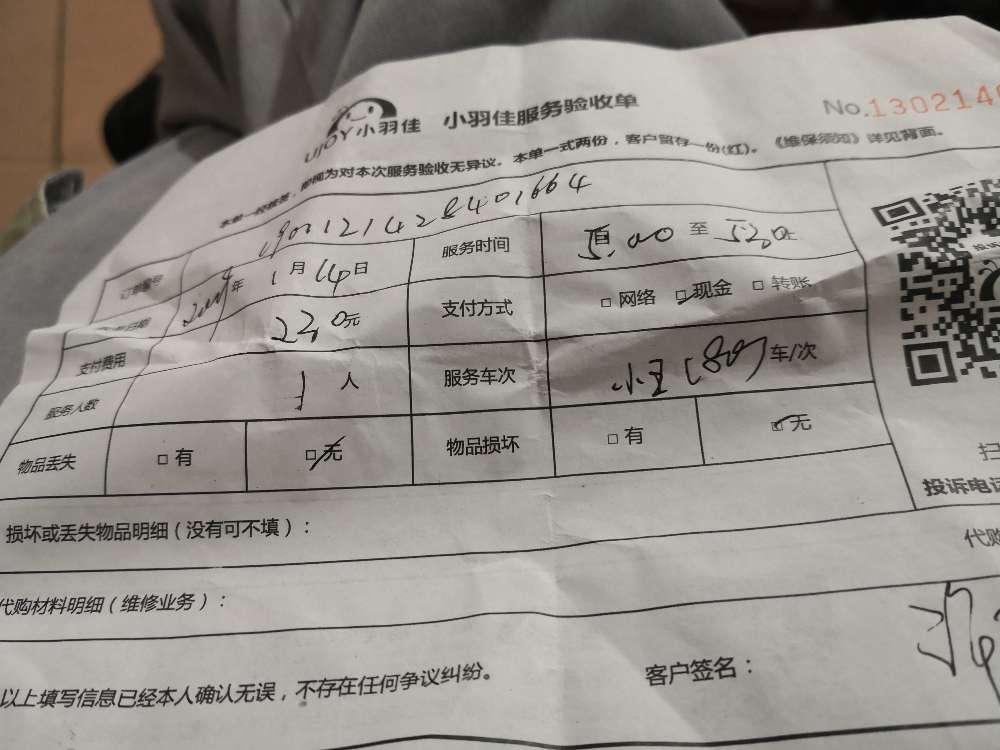 UJOY小羽佳 小羽佳服务验收单
No.1302140
为对本次服务验收无异议。本单一式两份，客户留存一份(红)。《维保须知》详见背面。
订单编号 1900121428401664
年 1月14日 服务时间 至
支付费用 220元 支付方式 □网络 ☑现金 □转账
服务人数 1人 服务车次 小王(809)车/次
物品丢失 □有 ☑无 物品损坏 □有 ☑无
损坏或丢失物品明细（没有可不填）：
扫
投诉电话
代购材料明细（维修业务）：
代购
以上填写信息已经本人确认无误，不存在任何争议纠纷。
客户签名：